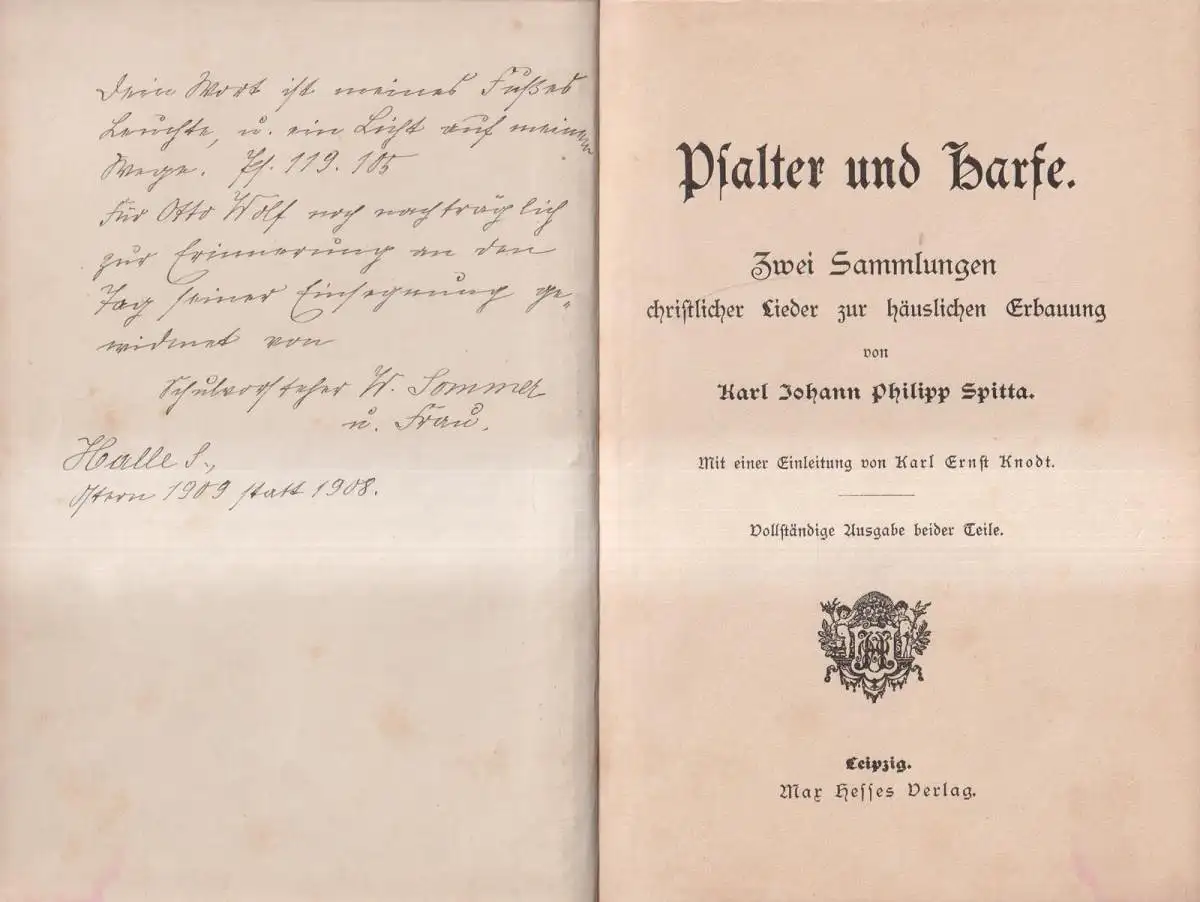 Dein Wort ist meines Fußes
Leuchte, u. ein Licht auf meinem
Wege. Ps. 119. 105
Für Otto Wolf noch nachträglich
zur Erinnerung an den
Tag seiner Einsegnung ge-
widmet von
Schulvorsteher W. Sommer
u. Frau.
Halle S.,
Ostern 1909 statt 1908.
Psalter und Harfe.
Zwei Sammlungen
christlicher Lieder zur häuslichen Erbauung
von
Karl Johann Philipp Spitta.
Mit einer Einleitung von Karl Ernst Knodt.
Vollständige Ausgabe beider Teile.
MHV
Leipzig.
Max Hesses Verlag.